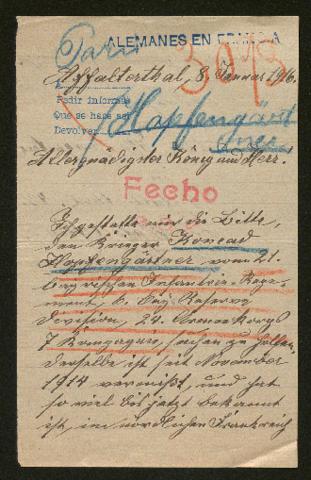 ALEMANES EN FRANCIA
Paris
3013
Affalterthal, 8. Januar 1916.
Pedir informes
Que se hace saber
Devolver
Hopfengärt
ner
Allergnädigster König und Herr.
Fecho
Ich gestatte mir die Bitte,
den Krieger Konrad
Hopfengärtner, vom 21.
bayrischen Infanterie-Regi-
ment 6. bay. Reserve
Division, 24.
7 Kompagnie, suchen zu helfen
derselbe ist seit November
1914 vermißt, und hat
so viel bis jetzt bekannt
ist, im nördlichen Frankreich